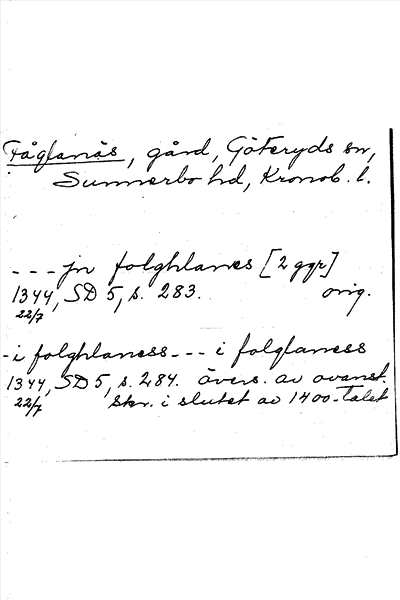 Fåglanäs, gård, Göteryds sn,
Sunnerbo hd, Kronob. l.
--- jn folghlanes [2 ggr]
1344, SD 5, s. 283. orig.
22/7
- i folghlaness --- i folglaness
1344, SD 5, s. 284. övers. av ovanst.
22/7 skr. i slutet av 1400-talet